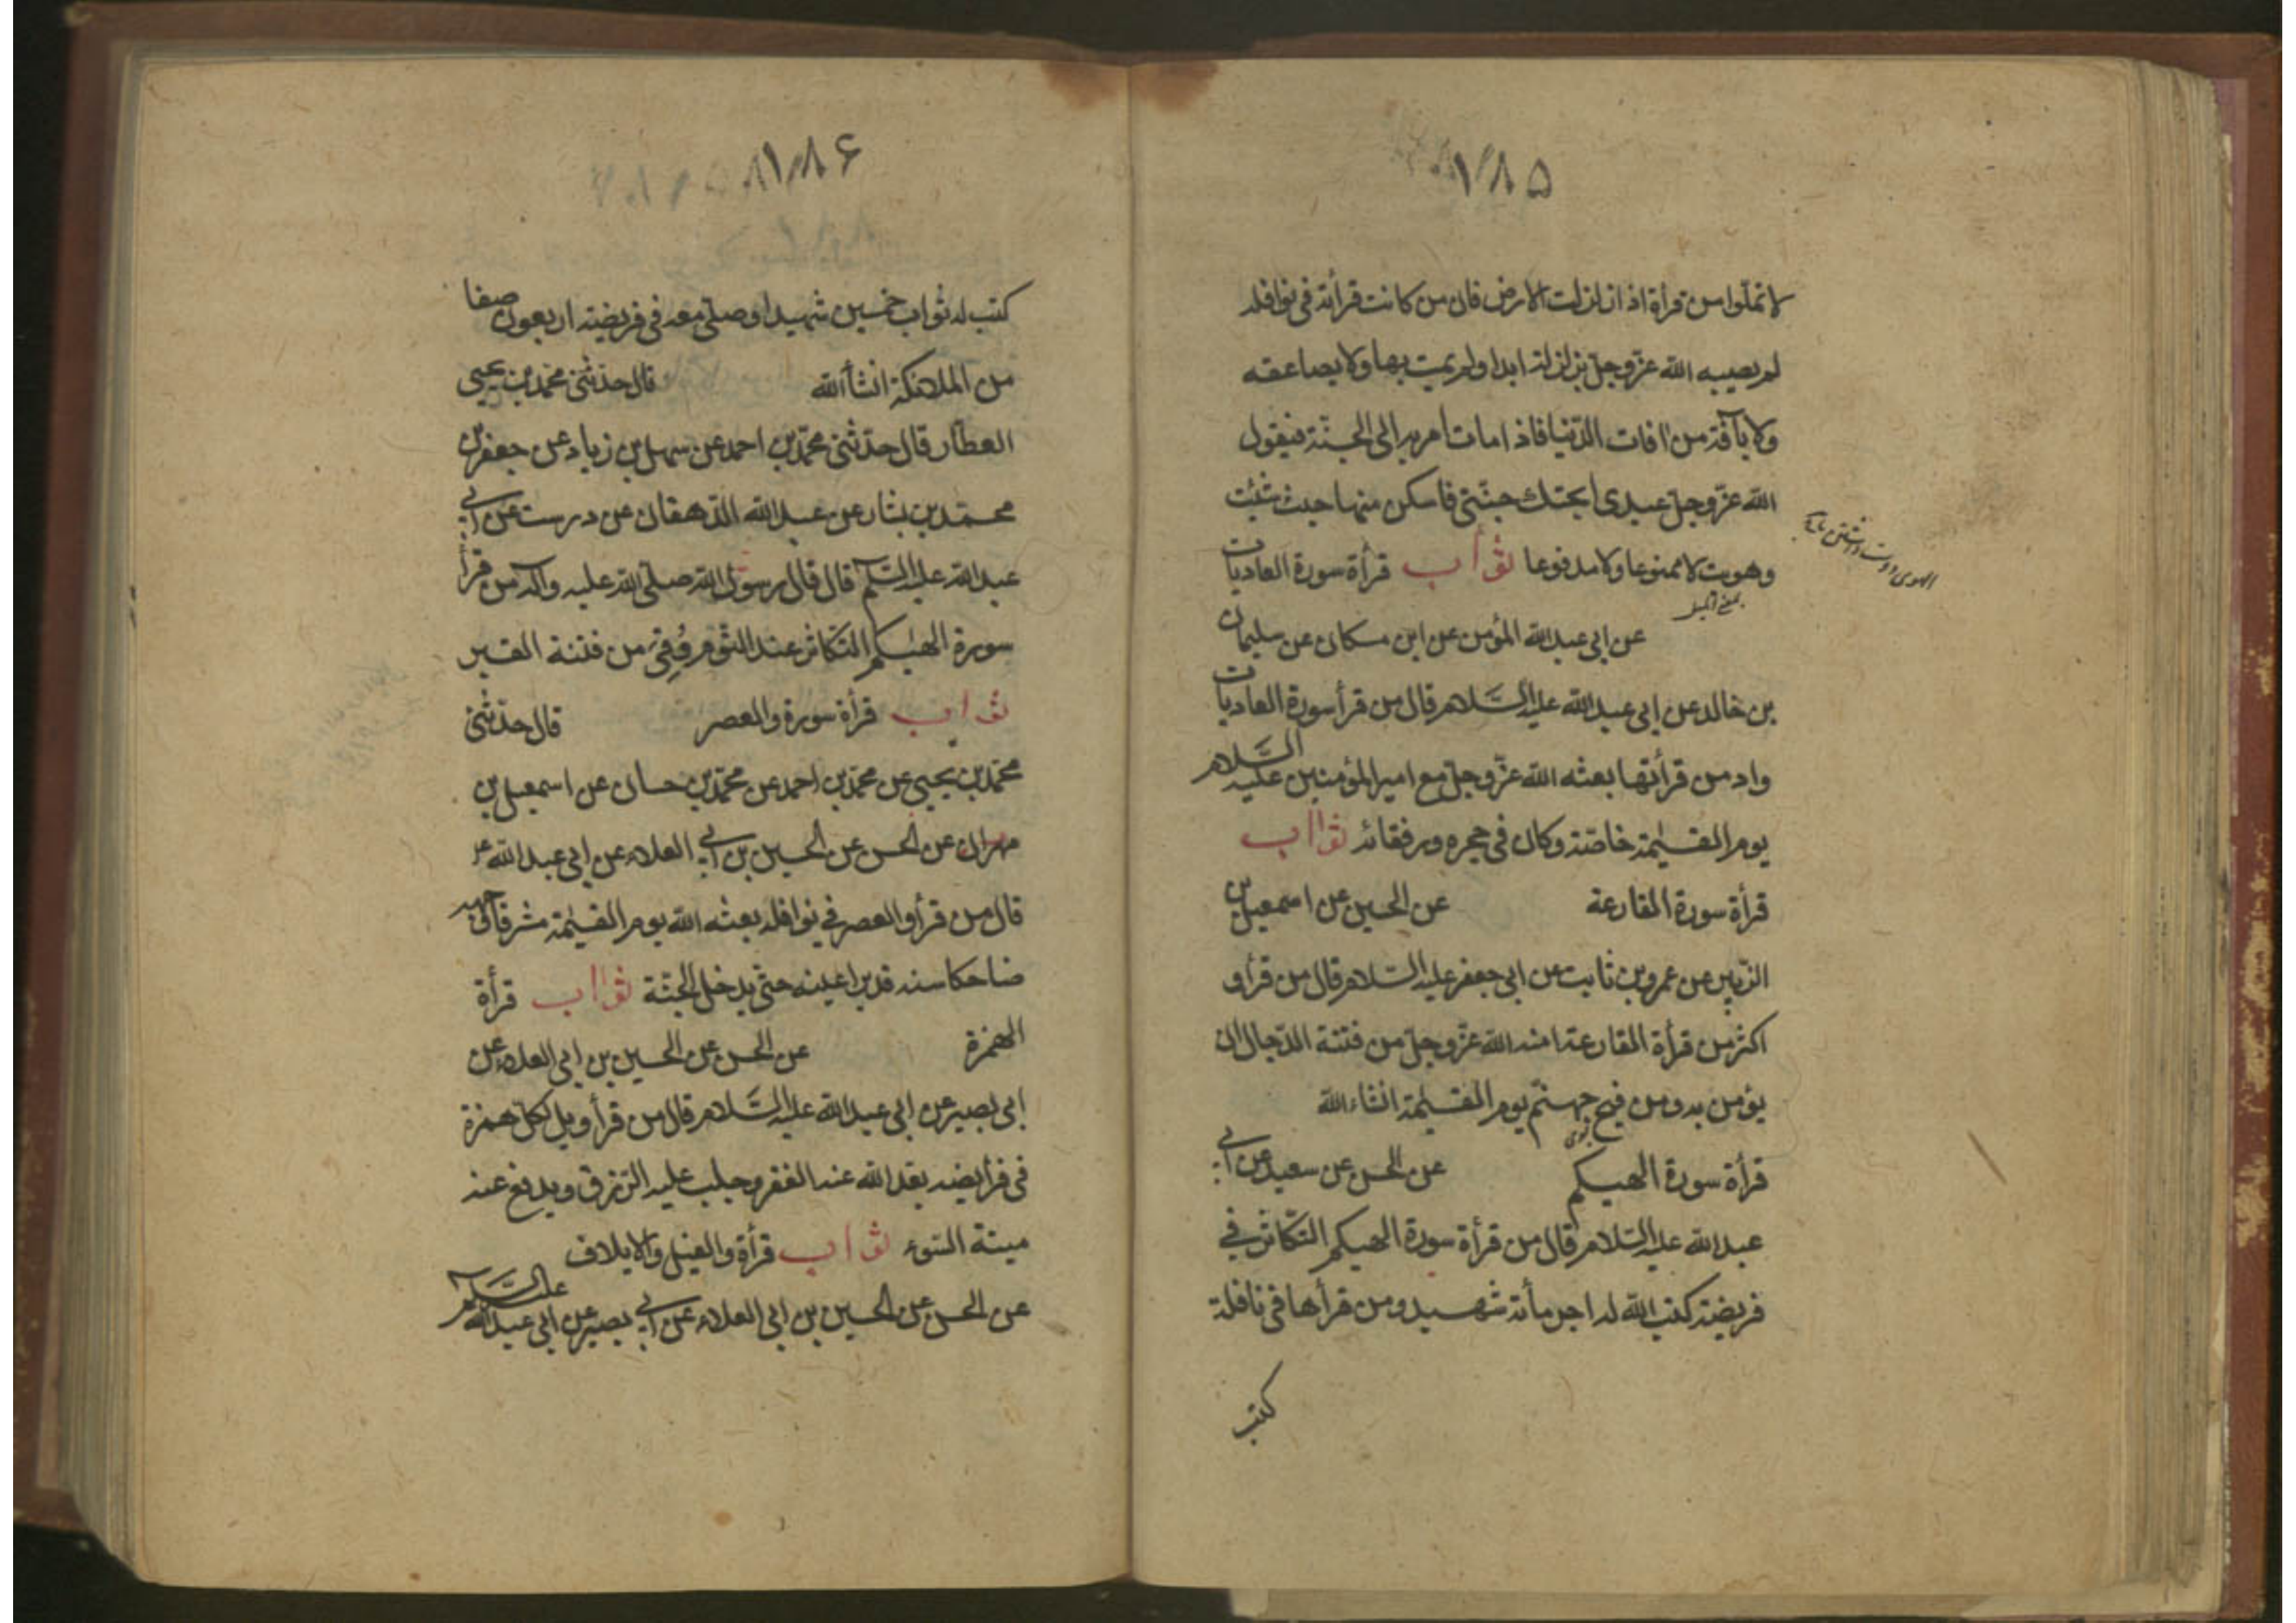 ١٨٥
لا تملّوا من قرأة اذا زلزلت الارض فان من كانت قرأته فى نوافله
لم يصيبه الله عزّوجلّ بزلزلة ابدا ولم يمت بها ولا بصاعقه
ولا بآفة من افات الدّنيا فاذا مات امر به الى الجنّة فيقول
الله عزّوجلّ عبدى ابحتك جنّتى فاسكن منها حيث شئت
وهويت لا ممنوعا ولا مدفوعا ثواب قرأة سورة العاديات
بمعنى الميل
الهوى دوست داشتن
عن ابى عبدالله المؤمن عن ابن مسكان عن سليمان
بن خالد عن ابى عبدالله عليه السّلام قال من قرأ سورة العاديات
وادمن قرأتها بعثه الله عزّوجلّ مع امير المؤمنين عليه السّلام
يوم القيٰمة خاصّة وكان فى حجره ورفقائه ثواب
قرأة سورة القارعة عن الحسين عن اسمعيل بن
الزّبير عن عمرو بن ثابت عن ابى جعفر عليه السّلام قال من قرأ و
اكثر من قرأة القارعة امنه الله عزّوجلّ من فتنة الدّجال ان
يؤمن به ومن فيح جهنّم يوم القيٰمة انشاء الله
قرأة سورة الهيكم عن الحسن عن سعيد عن ابى
عبدالله عليه السّلام قال من قرأة سورة الهيكم التّكاثر فى
فريضة كتب الله له اجر مأته شهيد ومن قرأها فى نافلة
كتب
١٨٦
كتب له ثواب خمسين شهيدا وصلّى معه فى فريضته اربعون صفا
من الملائكة انشأ الله قال حدّثنى محمّد بن يحيى
العطّار قال حدّثنى محمّد بن احمد عن سهل بن زياد عن جعفر بن
محمّد بن بشار عن عبدالله الدّهقان عن درست عن ابى
عبدالله عليه السّلم قال قال رسول الله صلّى الله عليه وآله من قرأ
سورة الهٰيكم التّكاثر عند النّوم وُقِىَ من فتنة القبر
ثواب قرأة سورة والعصر قال حدّثنى
محمّد بن يحيى عن محمّد بن احمد عن محمّد بن حسان عن اسمعيل بن
مهران عن الحسن عن الحسين بن ابى العلاء عن ابى عبدالله ع
قال من قرأ والعصر فى نوافله بعثه الله يوم القيٰمة مشرقا وجهه
ضاحكا سنه قريرا عينه حتّى يدخل الجنّة ثواب قرأة
الهمزة عن الحسن عن الحسين بن ابى العلاء عن
ابى بصير عن ابى عبدالله عليه السّلام قال من قرأ ويل لكلّ همزة
فى فرأيضه بعّد الله عنه الفقر وجلب عليه الرّزق ويدفع عنه
ميتة السّوء ثواب قرأة والفيل والايلاف
عن الحسن عن الحسين بن ابى العلاء عن ابى بصير عن ابى عبدالله عليه السّلام